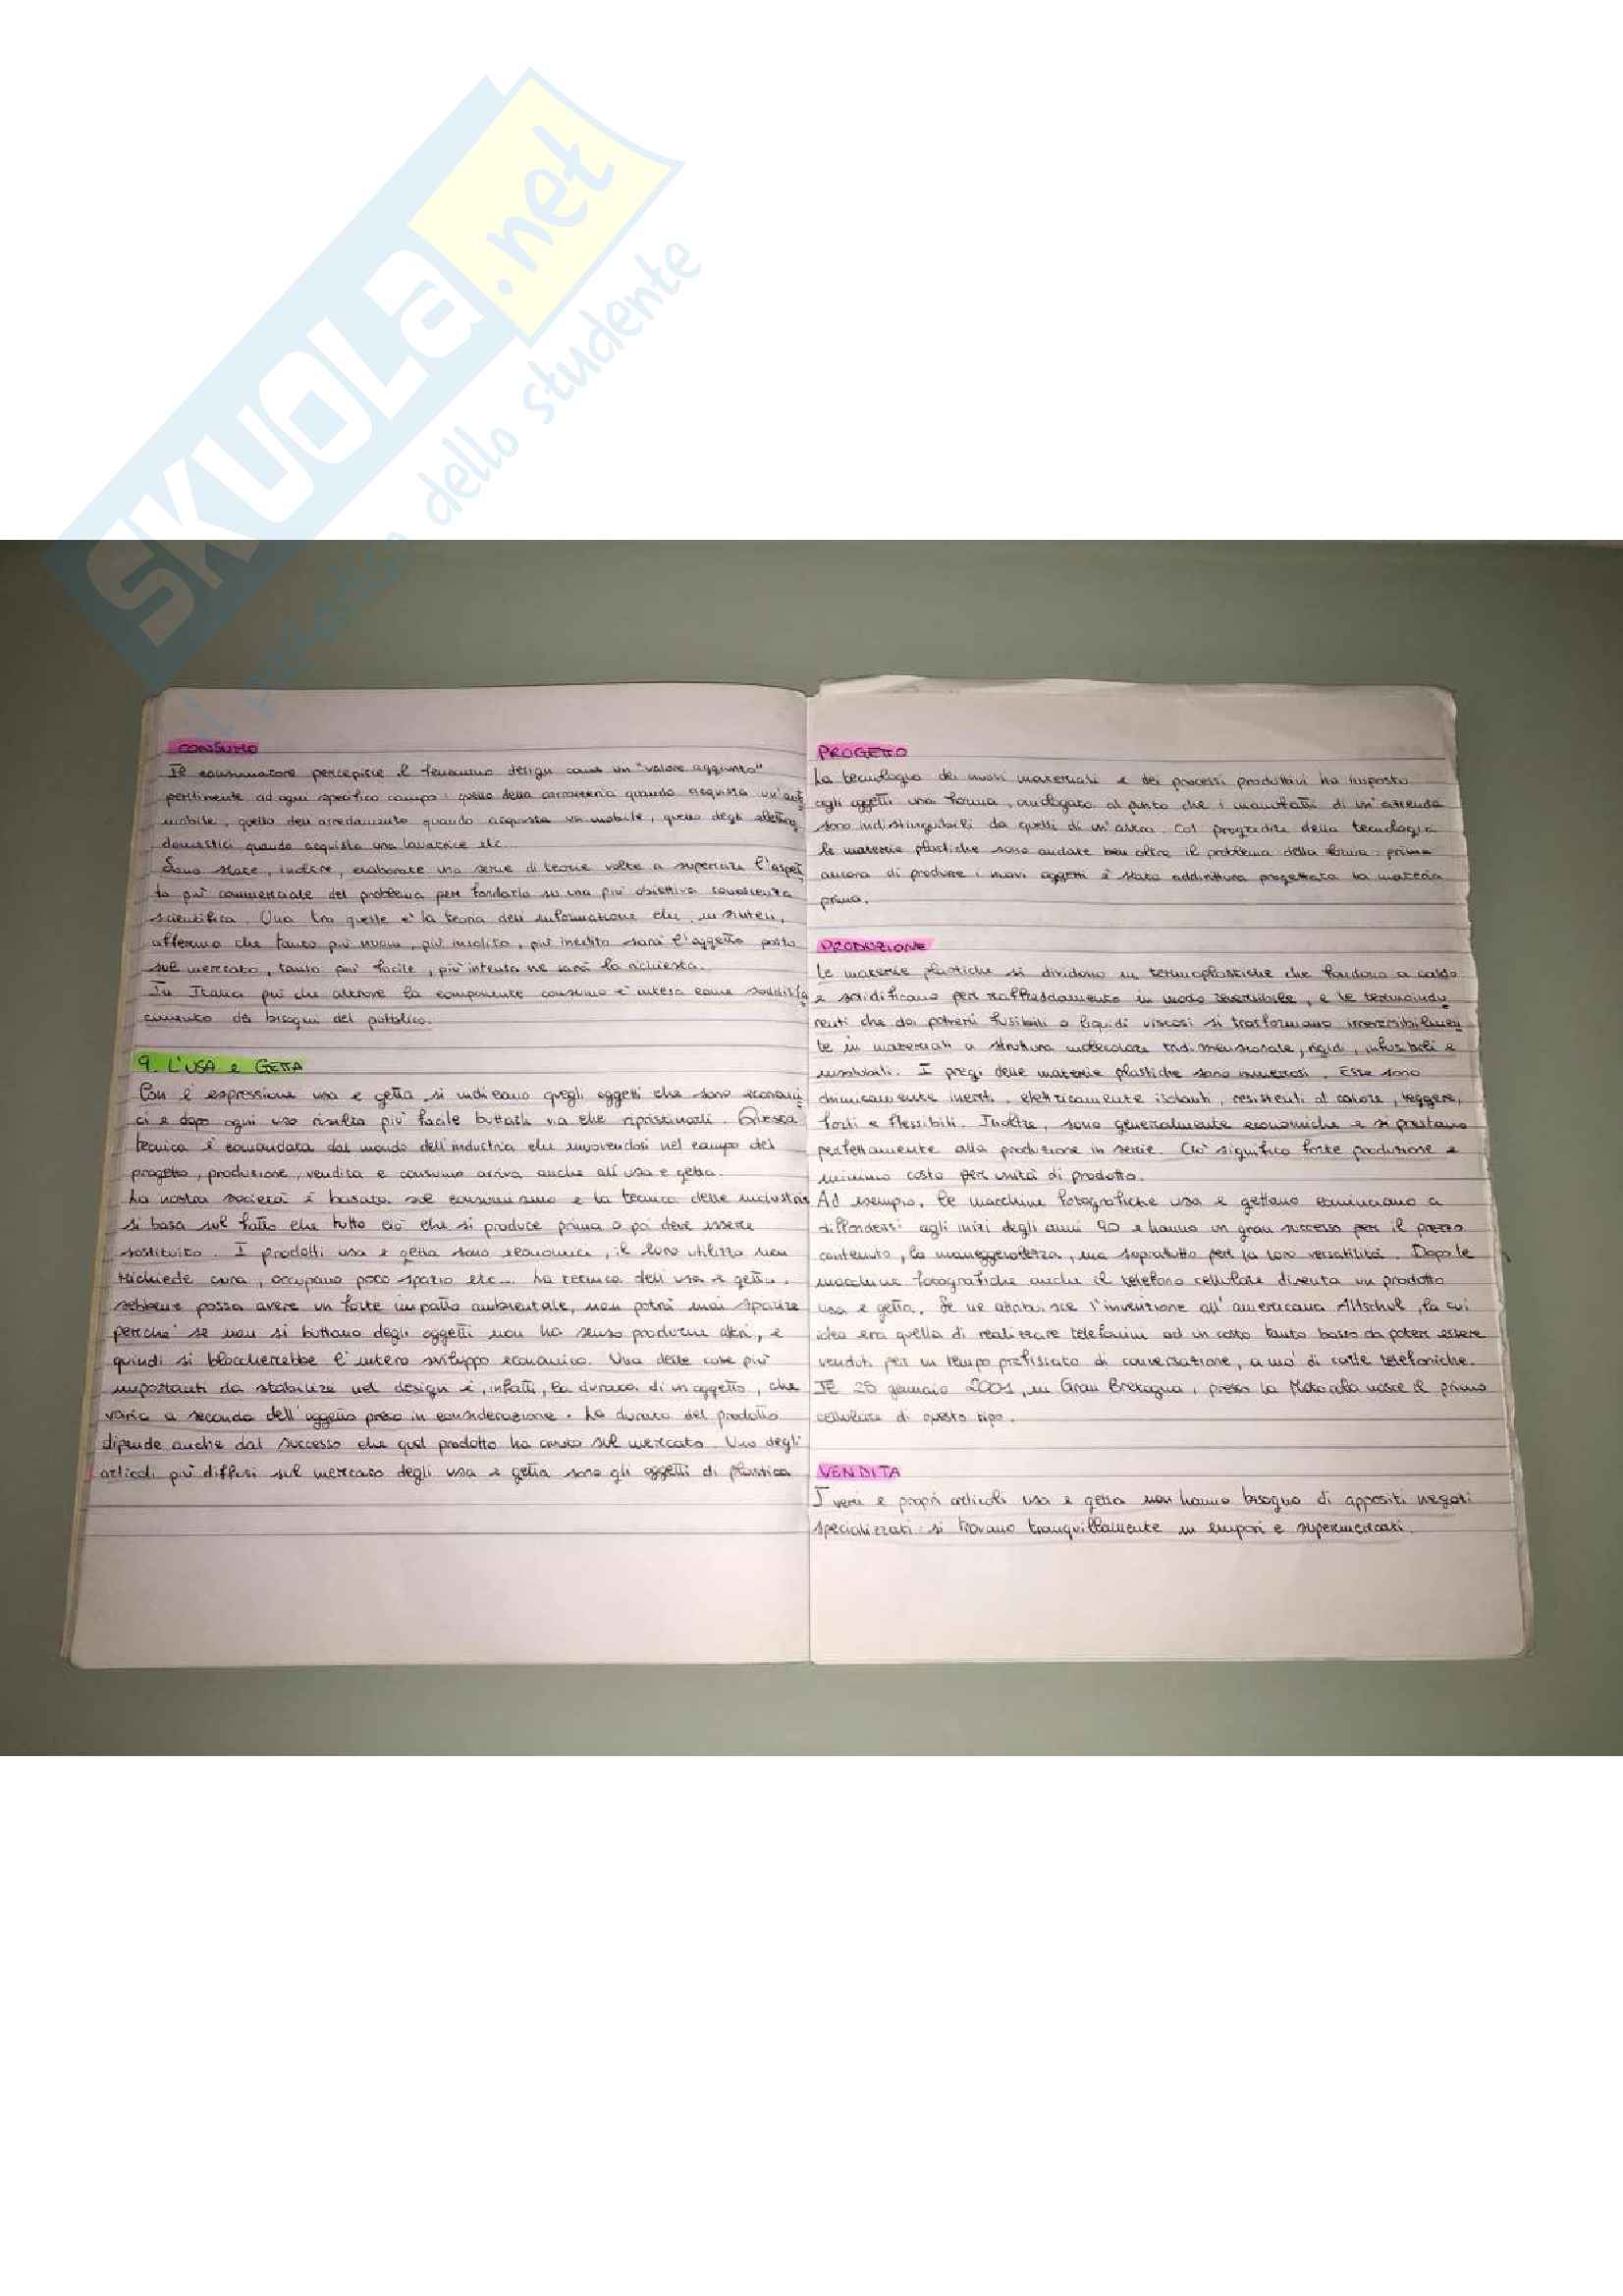 SKUOLA.net
il paradiso dello studente
CONSUMO
Il consumatore percepisce il fenomeno design come un "valore aggiunto"
pertinente ad ogni specifico campo: quello della carrozzeria quando acquista un'auto
mobile, quello dell'arredamento quando acquista un mobile, quello degli elettro
domestici quando acquista una lavatrice etc...
Sono state, inoltre, elaborate una serie di teorie volte a superare l'aspet
to più commerciale del problema per fondarlo su una più obiettiva conoscenza
scientifica. Una tra queste è la teoria dell'informazione che, in sintesi,
afferma che tanto più nuovo, più insolito, più inedito sarà l'oggetto posto
sul mercato, tanto più facile, più intensa ne sarà la richiesta.
In Italia più che altrove la componente consumo è intesa come soddisfa
cimento dei bisogni del pubblico.
9. L'USA e GETTA
Con l'espressione usa e getta si indicano quegli oggetti che sono economi
ci e dopo ogni uso risulta più facile buttarli via che ripristinarli. Questa
tecnica è comandata dal mondo dell'industria che muovendosi nel campo del
progetto, produzione, vendita e consumo arriva anche all'usa e getta.
La nostra società è basata sul consumismo e la tecnica delle industrie
si basa sul fatto che tutto ciò che si produce prima o poi deve essere
sostituito. I prodotti usa e getta sono economici, il loro utilizzo non
richiede cura, occupano poco spazio etc... La tecnica dell'usa e getta,
sebbene possa avere un forte impatto ambientale, non potrà mai sparire
perché se non si buttano degli oggetti non ha senso produrne altri, e
quindi si bloccherebbe l'intero sviluppo economico. Una delle cose più
importanti da stabilire nel design è, infatti, la durata di un oggetto, che
varia a seconda dell'oggetto preso in considerazione. La durata del prodotto
dipende anche dal successo che quel prodotto ha avuto sul mercato. Uno degli
articoli più diffusi sul mercato degli usa e getta sono gli oggetti di plastica
PROGETTO
La tecnologia dei nuovi materiali e dei processi produttivi ha imposto
agli oggetti una forma, analogata al punto che i manufatti di un'azienda
sono indistinguibili da quelli di un'altra. Col progredire della tecnologia
le materie plastiche sono andate ben oltre il problema della forma: prima
ancora di produrre i nuovi oggetti è stata addirittura progettata la materia
prima.
PRODUZIONE
Le materie plastiche si dividono in termoplastiche che fondono a caldo
e solidificano per raffreddamento in modo reversibile, e le termoindu
renti che da polveri fusibili o liquidi viscosi si trasformano irreversibilmen
te in materiali a struttura molecolare tridimensionale, rigidi, infusibili e
insolubili. I pregi delle materie plastiche sono numerosi. Esse sono
chimicamente inerti, elettricamente isolanti, resistenti al calore, leggere,
forti e flessibili. Inoltre, sono generalmente economiche e si prestano
perfettamente alla produzione in serie. Ciò significa forte produzione e
minimo costo per unità di prodotto.
Ad esempio, le macchine fotografiche usa e gettano cominciano a
diffondersi agli inizi degli anni 90 e hanno un gran successo per il prezzo
contenuto, la maneggevolezza, ma sopratutto per la loro versatilità. Dopo le
macchine fotografiche anche il telefono cellulare diventa un prodotto
usa e getta. Se ne attribuisce l'invenzione all'americana Altschul, la cui
idea era quella di realizzare telefonini ad un costo tanto basso da poter essere
venduti per un tempo prefissato di conversazione, a mo' di carte telefoniche.
Il 25 gennaio 2001, in Gran Bretagna, presso la Motorola nasce il primo
cellulare di questo tipo.
VENDITA
I veri e propri articoli usa e getta non hanno bisogno di appositi negozi
specializzati: si trovano tranquillamente in empori e supermercati.